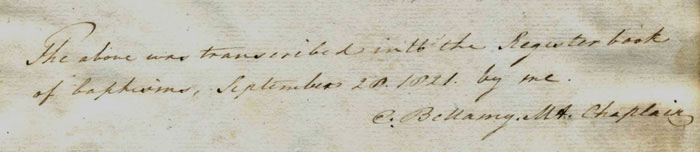 The above was transcribed into the Register book
of baptisms, September 28. 1821. by me.
C. Bellamy. MA. Chaplain